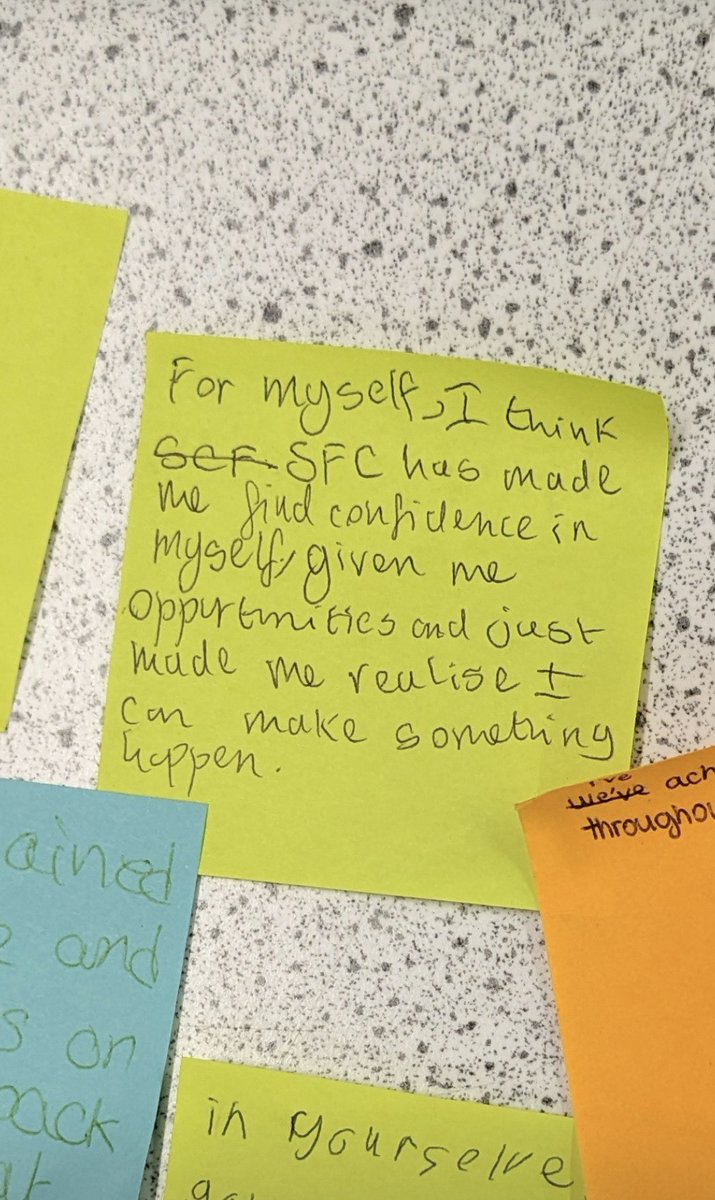 For myself, I think
SCF SFC has made
me find confidence in
myself, given me
oppurtunities and just
made me realise I
can make something
happen.
i've
we've ach
throughou
ained
e and
s on
back
at
in yourselve